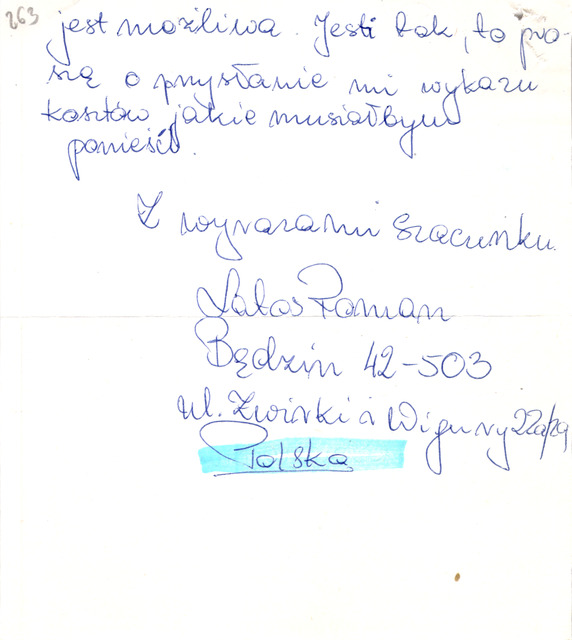 263
jest możliwa. Jesti tak, to pro-
szą o przysłanie mi wykazu
kosztów jakie musiałbym
ponieść.
Z wyrazami szacunku
Latos Roman
Będzin 42-503
ul. Żwirki i Wigury 22a/29
Polska